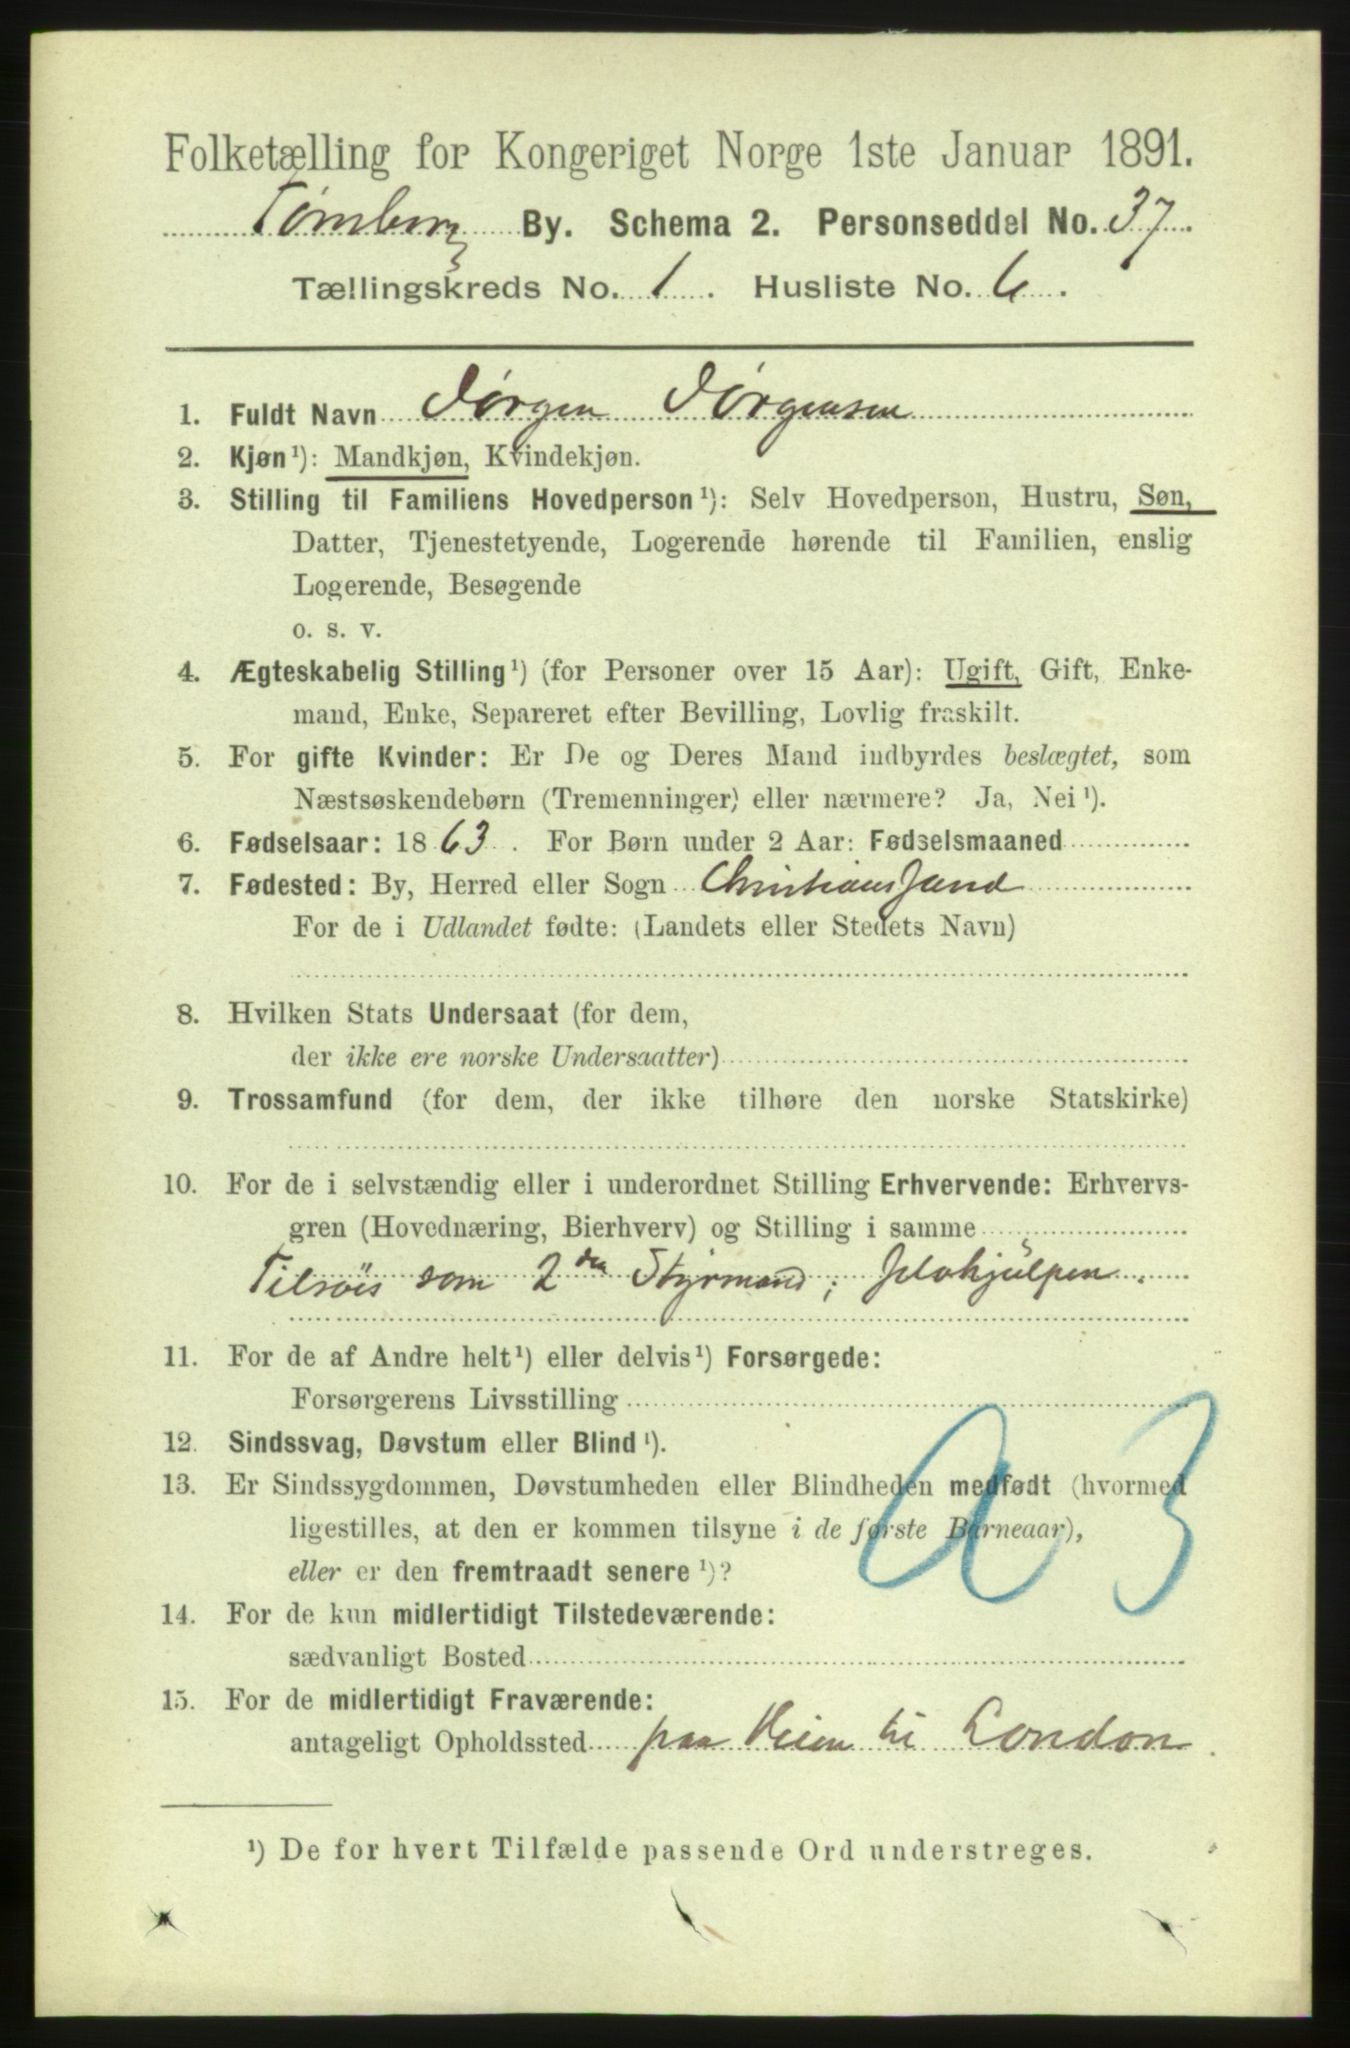 Folketælling for Kongeriget Norge 1ste Januar 1891.
Tønsberg By. Schema 2. Personseddel No. 37.
Tællingskreds No. 1. Husliste No. 6.
1. Fuldt Navn Jørgen Jørgensen
2. Kjøn¹): Mandkjøn, Kvindekjøn.
3. Stilling til Familiens Hovedperson¹): Selv Hovedperson, Hustru, Søn,
Datter, Tjenestetyende, Logerende hørende til Familien, enslig
Logerende, Besøgende
o. s. v.
4. Ægteskabelig Stilling¹) (for Personer over 15 Aar): Ugift, Gift, Enke-
mand, Enke, Separeret efter Bevilling, Lovlig fraskilt.
5. For gifte Kvinder: Er De og Deres Mand indbyrdes beslægtet, som
Næstsøskendebørn (Tremenninger) eller nærmere? Ja, Nei¹).
6. Fødselsaar: 1863. For Børn under 2 Aar: Fødselsmaaned
7. Fødested: By, Herred eller Sogn Christianssand
For de i Udlandet fødte: (Landets eller Stedets Navn)
8. Hvilken Stats Undersaat (for dem,
der ikke ere norske Undersaatter)
9. Trossamfund (for dem, der ikke tilhøre den norske Statskirke)
10. For de i selvstændig eller i underordnet Stilling Erhvervende: Erhvervs-
gren (Hovednæring, Bierhverv) og Stilling i samme
Tilsøis som 2den Styrmand; selvhjulpen.
11. For de af Andre helt¹) eller delvis¹) Forsørgede:
Forsørgerens Livsstilling
12. Sindssvag, Døvstum eller Blind¹).
13. Er Sindssygdommen, Døvstumheden eller Blindheden medfødt (hvormed
ligestilles, at den er kommen tilsyne i de første Barneaar),
eller er den fremtraadt senere¹)?
a 3
14. For de kun midlertidigt Tilstedeværende:
sædvanligt Bosted
15. For de midlertidigt Fraværende:
antageligt Opholdssted paa Veien til London.
¹) De for hvert Tilfælde passende Ord understreges.